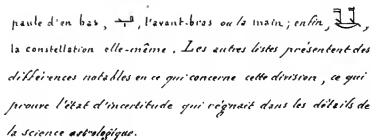 paule d'en bas, , l'avant-bras ou la main; enfin, ,
la constellation elle-même. Les autres listes présentent des
différences notables en ce qui concerne cette division, ce qui
prouve l'état d'incertitude qui régnait dans les détails de
la science astrologique.